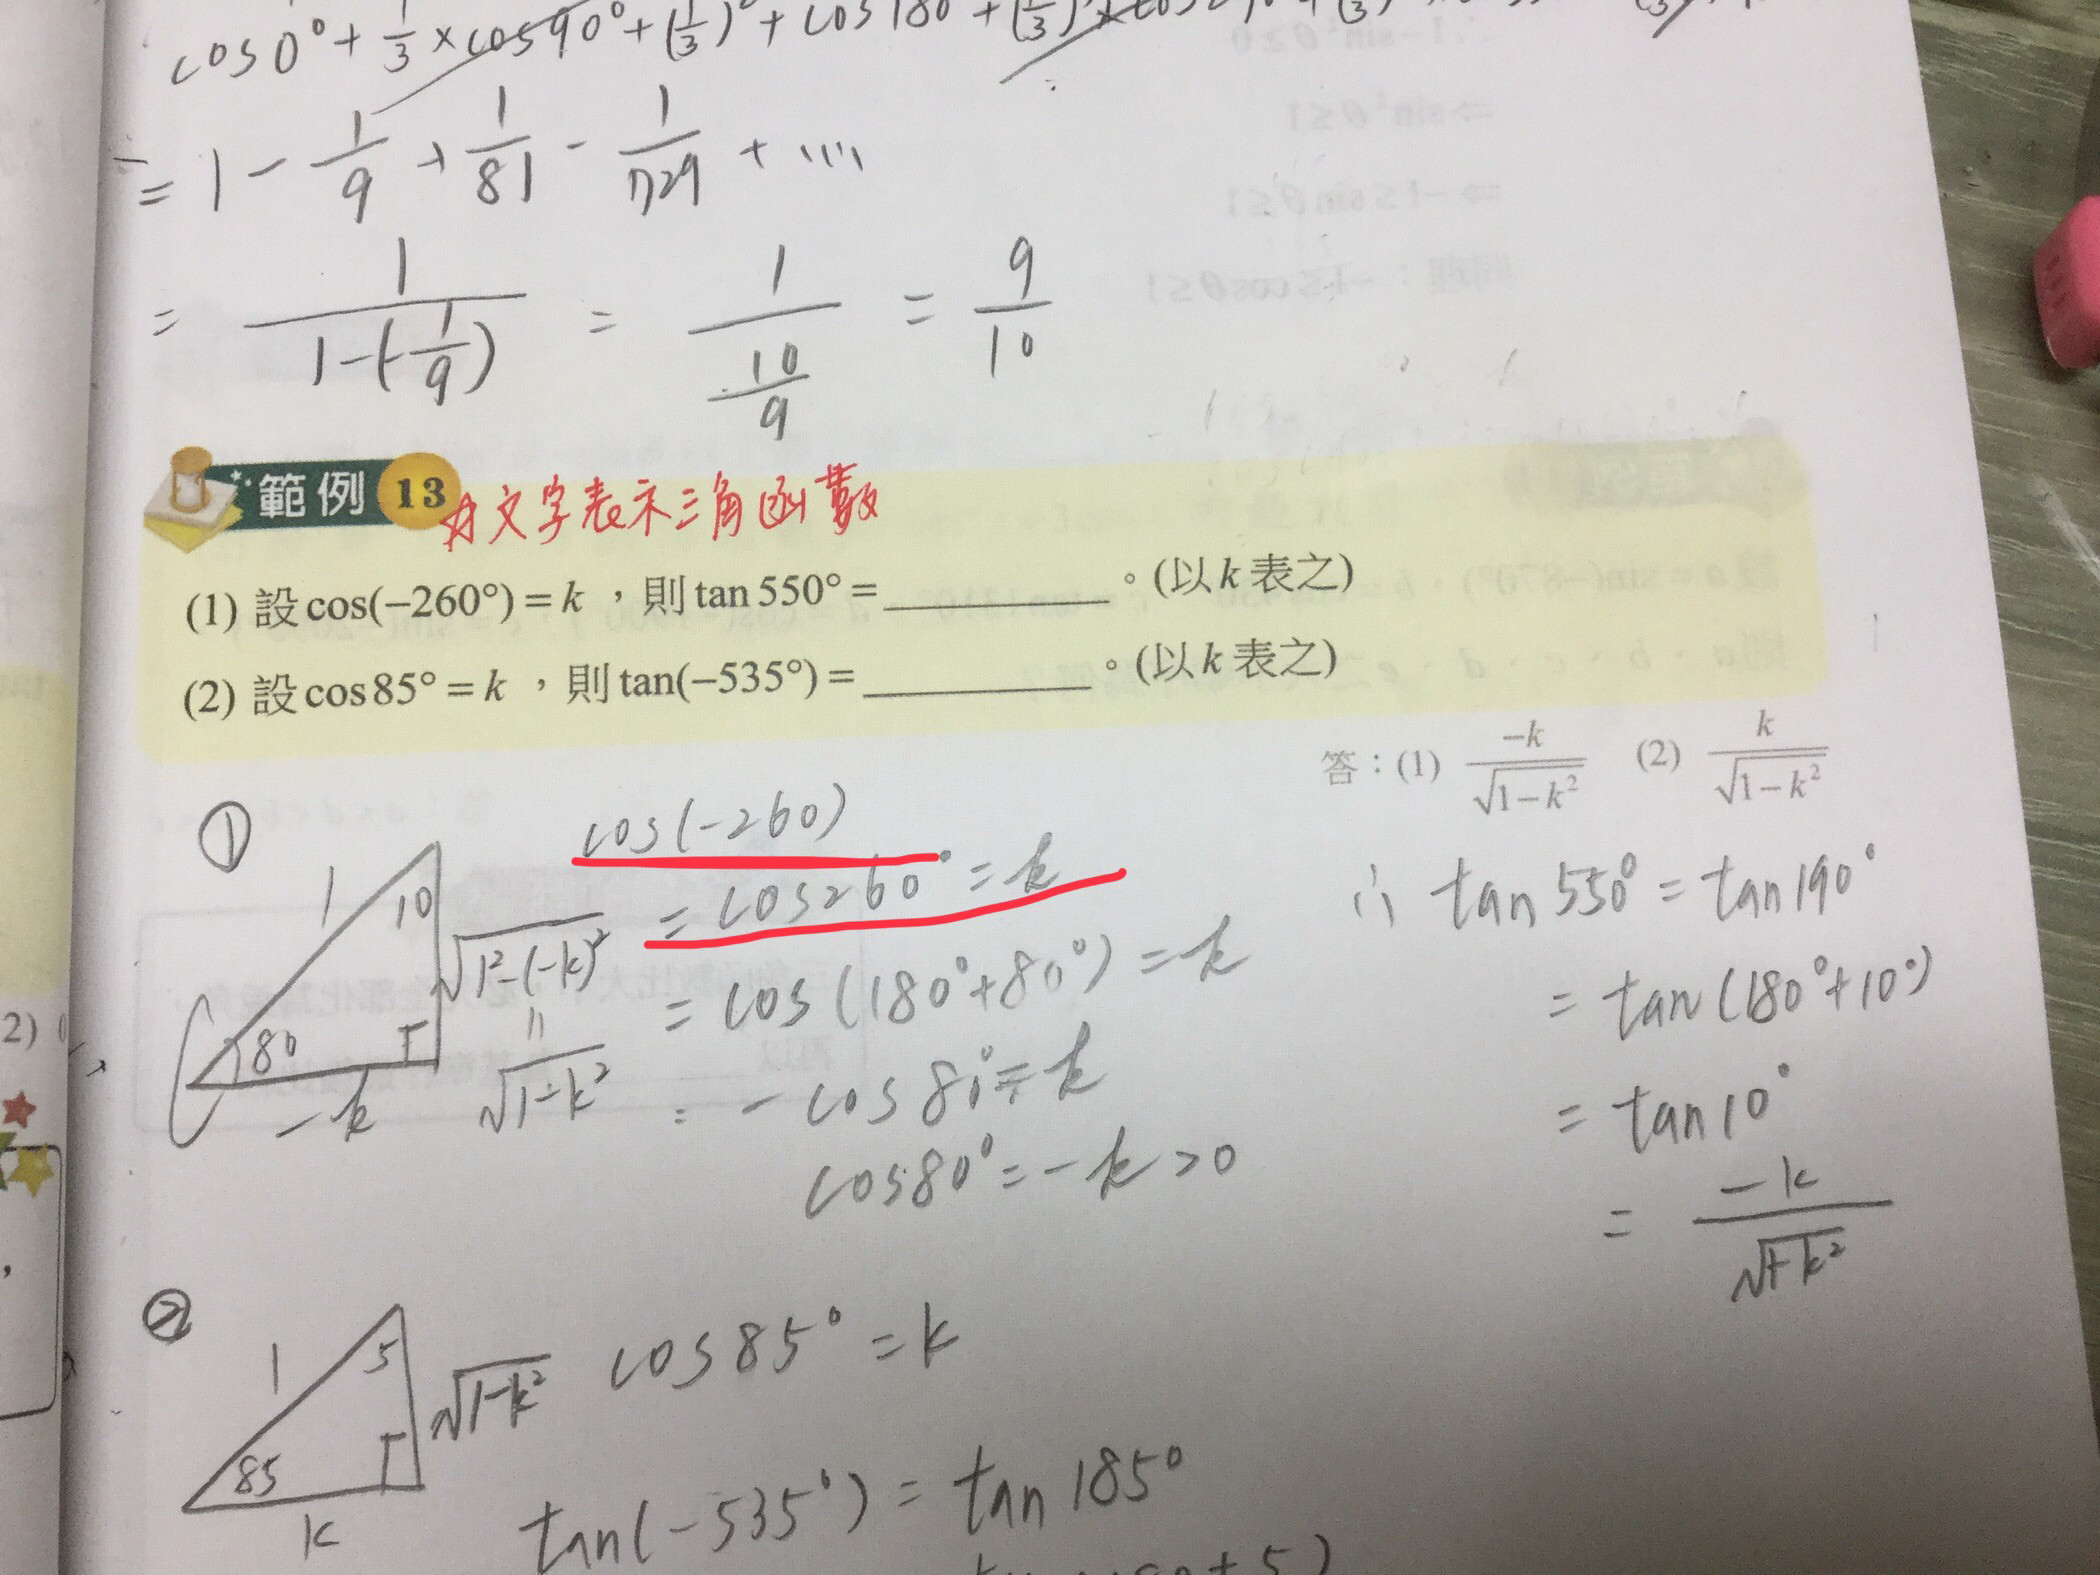 cos0° + 1/3 × cos90° + (1/3) + cos180
= 1 - 1/9 + 1/81 - 1/729 + ...
= 1/(1-(-1/9)) = 1/(10/9) = 9/10
範例 13 文字表示三角函數
(1) 設 cos(−260°) = k ，則 tan 550° = ________。(以 k 表之)
(2) 設 cos 85° = k ，則 tan(−535°) = ________。(以 k 表之)
答：(1) -k/√(1-k²) (2) k/√(1-k²)
①
1
10
80
-k
√(1²-(-k)²)
=
√(1-k²)
cos(-260)
= cos260° = k
= cos(180°+80°) = k
= -cos80° = k
cos80° = -k > 0
∴ tan550° = tan190°
= tan(180°+10°)
= tan10°
= -k/√(1-k²)
②
1
5
85
k
√(1-k²)
cos85° = k
tan(-535°) = tan185°
2)